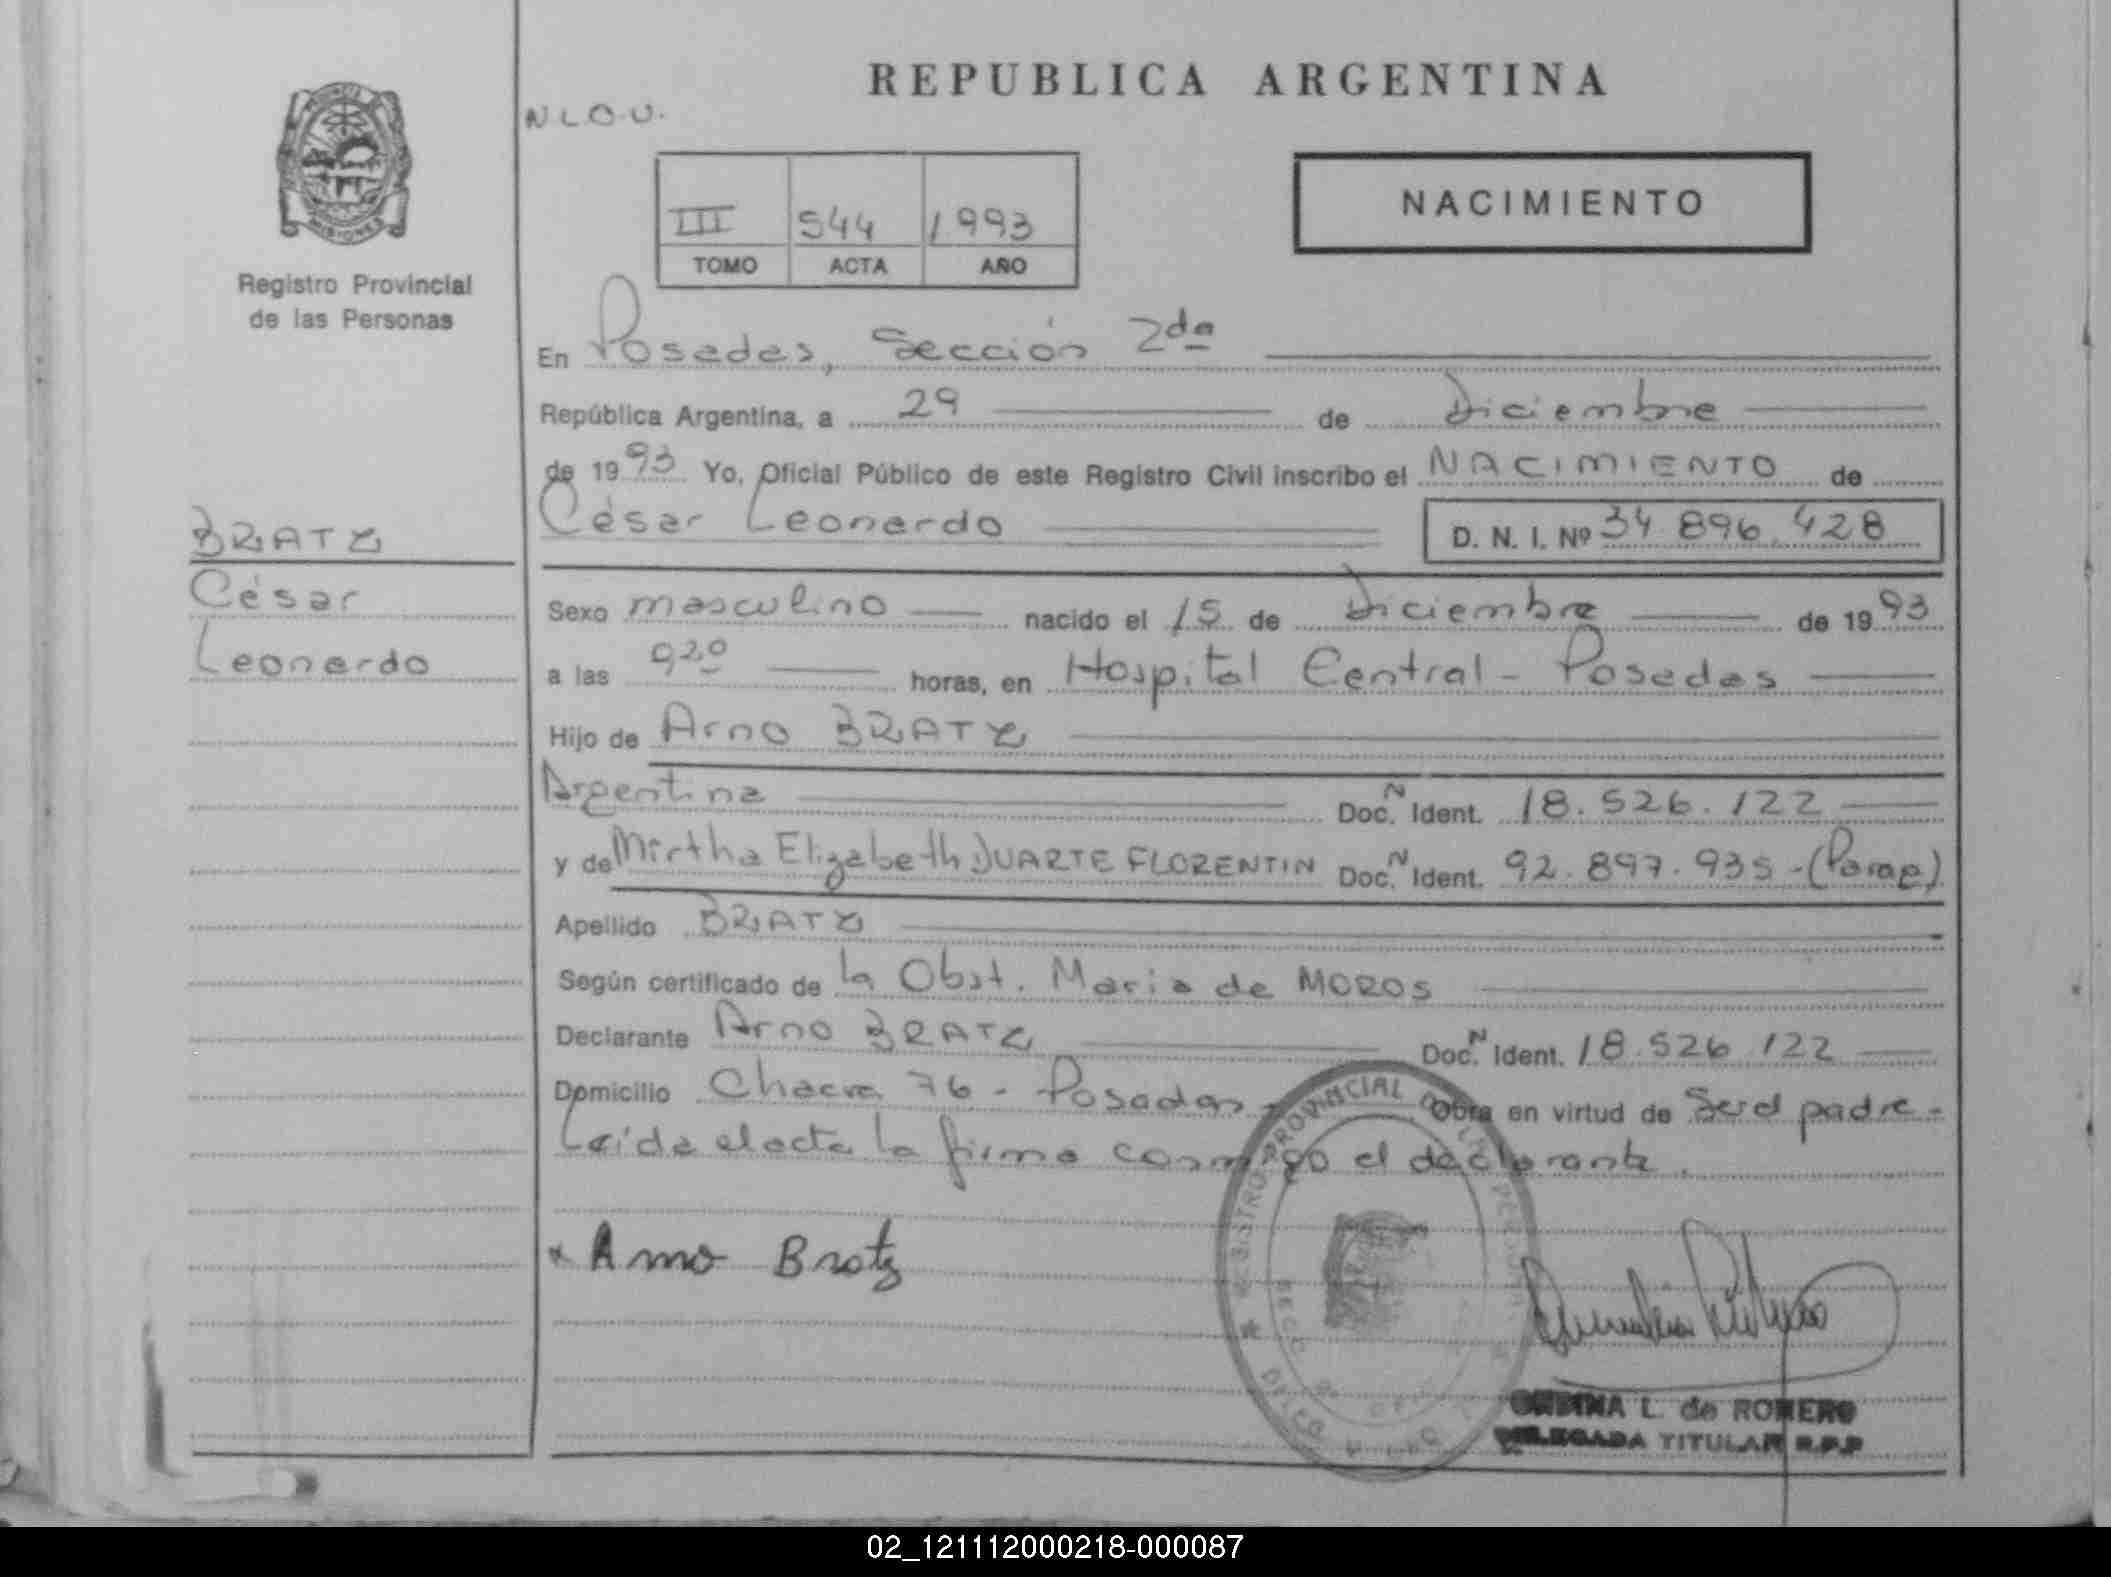 REPUBLICA ARGENTINA
N L O U.
NACIMIENTO
III 544 1993
TOMO ACTA AÑO
PROVINCIA
MISIONES
Registro Provincial
de las Personas
En Posadas, Sección 2da
República Argentina, a 29 de Diciembre
de 1993 Yo, Oficial Público de este Registro Civil inscribo el NACIMIENTO de
César Leonardo D. N. I. Nº 34 896.428
BRATZ
César
Leonardo
Sexo masculino nacido el 15 de Diciembre de 1993
a las 920 horas, en Hospital Central - Posadas
Hijo de Arno BRATZ
Argentina Doc. N Ident. 18.526.122
y de Mirtha Elizabeth DUARTE FLORENTIN Doc. N Ident. 92.897.935 - (Parag)
Apellido BRATZ
Según certificado de la Obst. Maria de MOROS
Declarante Arno BRATZ Doc. N Ident. 18.526.122
Domicilio Chacra 76 - Posadas - Obra en virtud de Ser el padre -
Leída el acta la firma conmigo el declarante.
* Arno Bratz
REGISTRO PROVINCIAL DE LAS PERSONAS
L. de ROMERO
DELEGADA TITULAR R.P.P
02_121112000218-000087